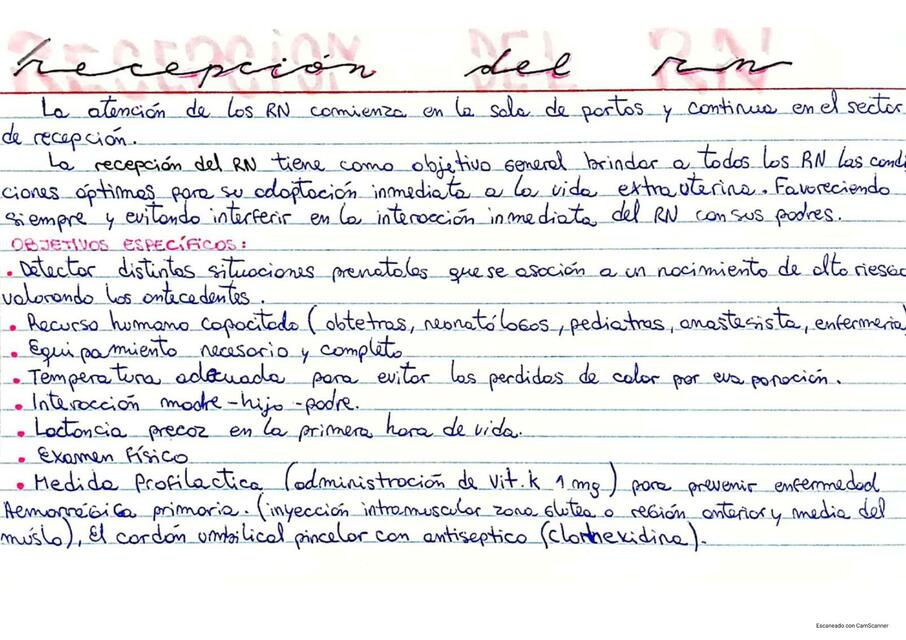 RECEPCION DEL RN
recepción del rn
La atención de los RN comienza en la sala de partos y continua en el sector
de recepción.
La recepción del RN tiene como objetivo general brindar a todos los RN las condi
ciones optimas para su adaptación inmediata a la vida extrauterina. Favoreciendo
siempre y evitando interferir en la interacción inmediata del RN con sus padres.
OBJETIVOS ESPECÍFICOS:
• Detectar distintas situaciones prenatales que se asocian a un nacimiento de alto riesgo
valorando los antecedentes.
• Recurso humano capacitado (obtetras, neonatólogos, pediatras, anastesista, enfermeria)
• Equipamiento necesario y completo
• Temperatura adecuada para evitar las perdidas de calor por evaporación.
• Interacción madre-hijo-padre.
• Lactancia precoz en la primera hora de vida.
• Examen Físico
• Medida Profilactica (administración de Vit.k 1mg) para prevenir enfermedad
Aemorrágica primaria. (inyección intramuscular zona glutea o región anterior y media del
múslo), El cordón umbilical pincelar con antiseptico (Clorhexidina).
Escaneado con CamScanner